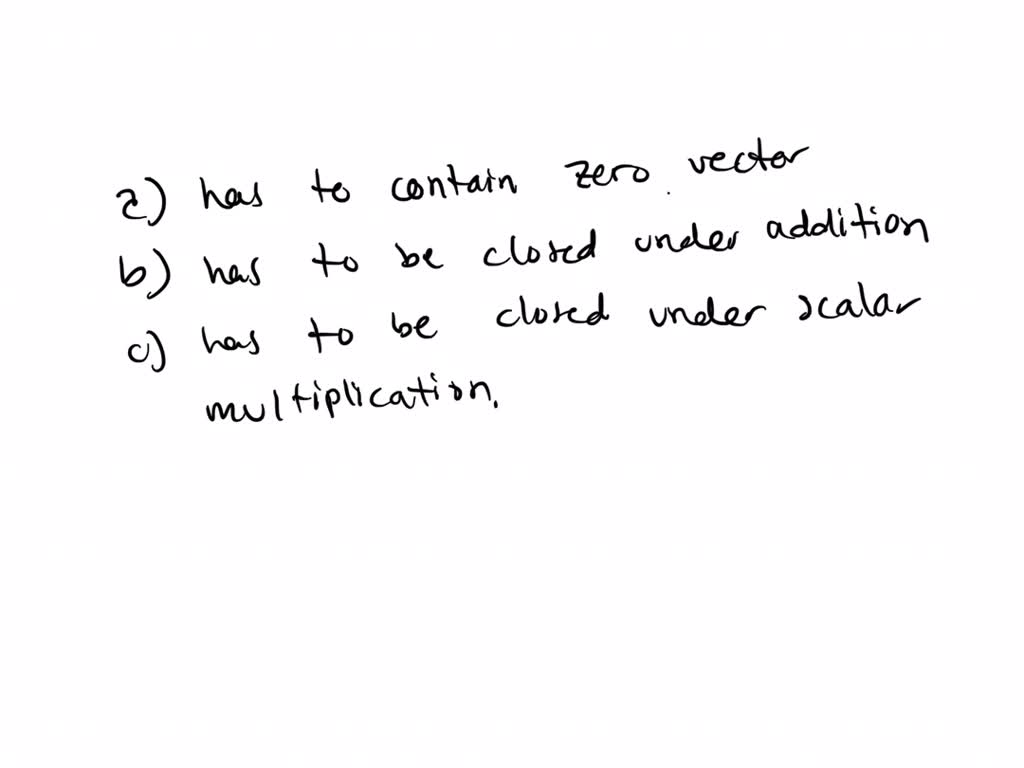 a) has to contain zero vector
b) has to be closed under addition
c) has to be closed under scalar
multiplication.